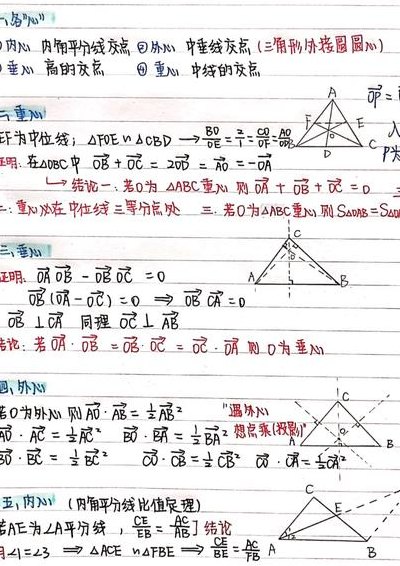 一、各"心"
①内心 内角平分线交点 ②外心 中垂线交点 (三角形外接圆圆心)
③垂心 高的交点 ④重心 中线的交点
二、重心
EF为中位线; △FOE ∽ △CBD → BO/OE = 2/1 = CO/OF = AO/OD
证明: 在△OBC中 OB + OC = 2OD = AO = -OA
↳ 结论一: 若O为 △ABC重心 则 OA + OB + OC = 0
二: 重心必在中位线三等分点处 三. 若O为△ABC重心 则 S△OAB = S△OA
A
F E
O
B D C
OP =
λ
P为
三、垂心
证明: OA OB - OB OC = 0
OB (OA - OC) = 0 ⇒ OB CA = 0
OB ⊥ CA 同理 OC ⊥ AB
结论: 若 OA · OB = OB · OC = OC · OA 则 O为垂心
C
O
A B
四、外心
若O为外心 则 AO · AB = ½AB² "遇外心
AO · AC = ½AC² BO · BA = ½BA² 想点乘(投影)"
BO · BC = ½BC² CO · CB = ½CB² CO · CA = ½CA²
C
O
A B
五、内心 (内角平分线比值定理)
若AE为∠A平分线 , CE/EB = AC/AB ] 结论
∠1=∠3 ⇒ △ACE ∽ △FBE ⇒ CE/BE = AC/FB
C
E
A B